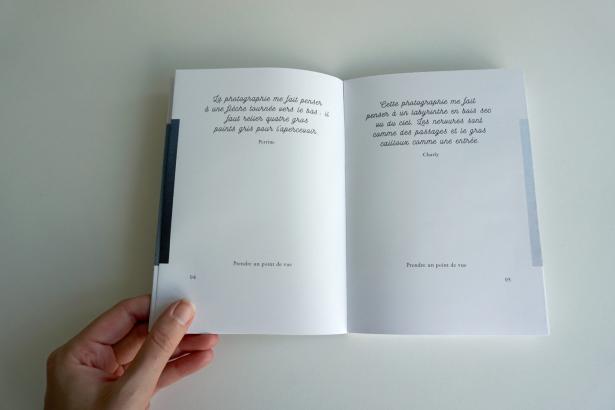 La photographie me fait penser
à une flèche tournée vers le bas : il
faut relier quatre gros
points gris pour l'apercevoir.
Perrine
Prendre un point de vue
94
Cette photographie me fait
penser à un labyrinthe en bois sec
vu du ciel. Les nervures sont
comme des passages et le gros
cailloux comme une entrée.
Charly
Prendre un point de vue
95